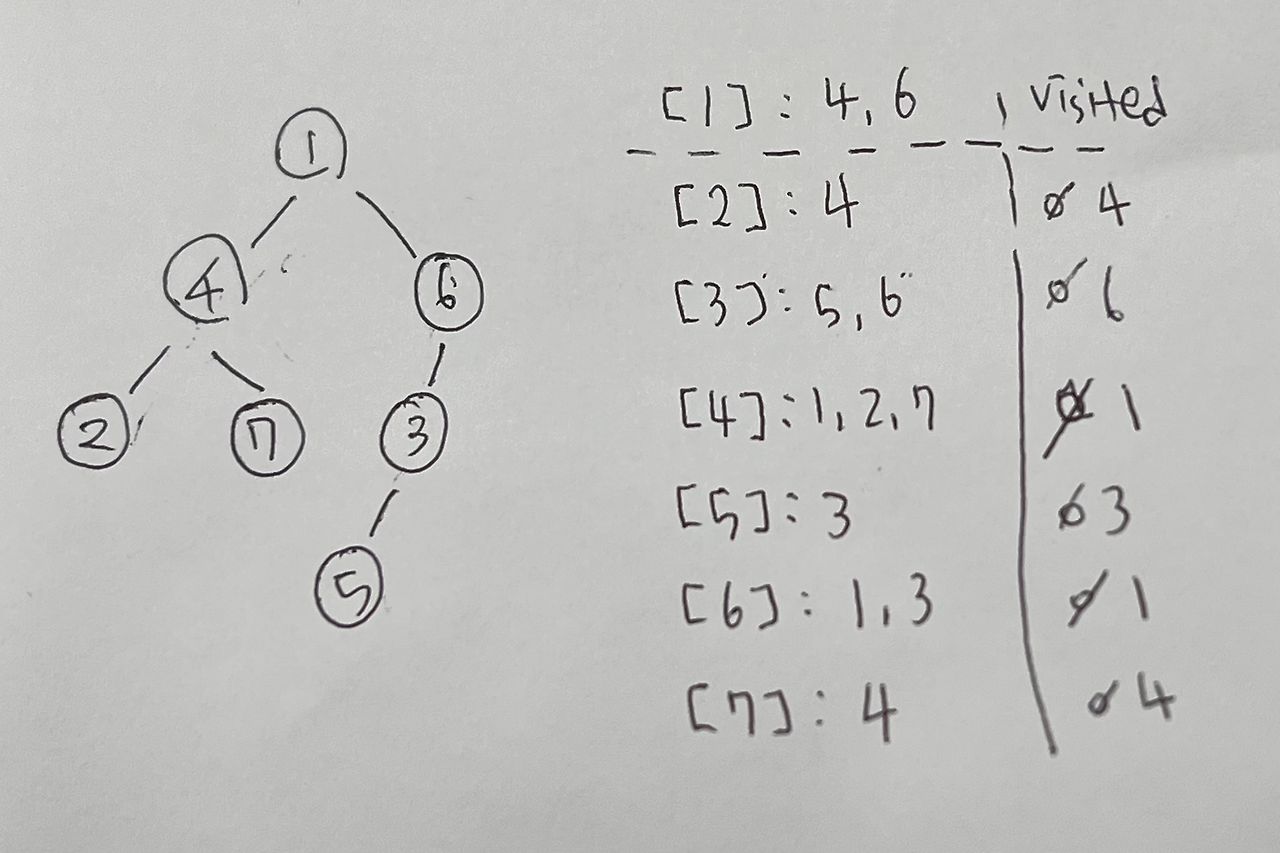 1
4 6
2 7 3
5
[1]: 4, 6 , visited
[2]: 4 0 4
[3]: 5, 6 0 6
[4]: 1, 2, 7 1
[5]: 3 0 3
[6]: 1, 3 0 1
[7]: 4 0 4